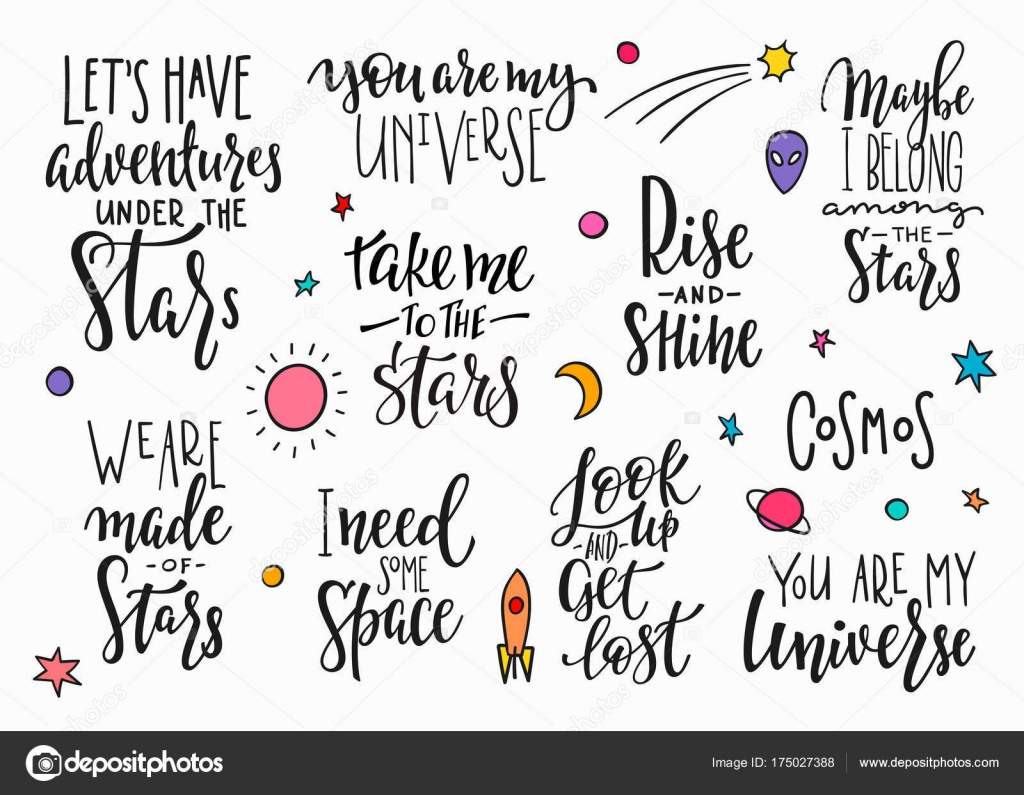 LET'S HAVE
adventures
UNDER THE
Stars
You are my
UNIVERSE
Maybe
I BELONG
among
-THE-
Stars
take me
-TO THE-
stars
Rise
-AND-
SHine
COSMOS
WE ARE
made
-OF-
Stars
I need
SOME
Space
Look
up
-AND-
Get
lost
YOU ARE MY
Universe
depositphotos
Image ID: 175027388
www.depositphotos.com